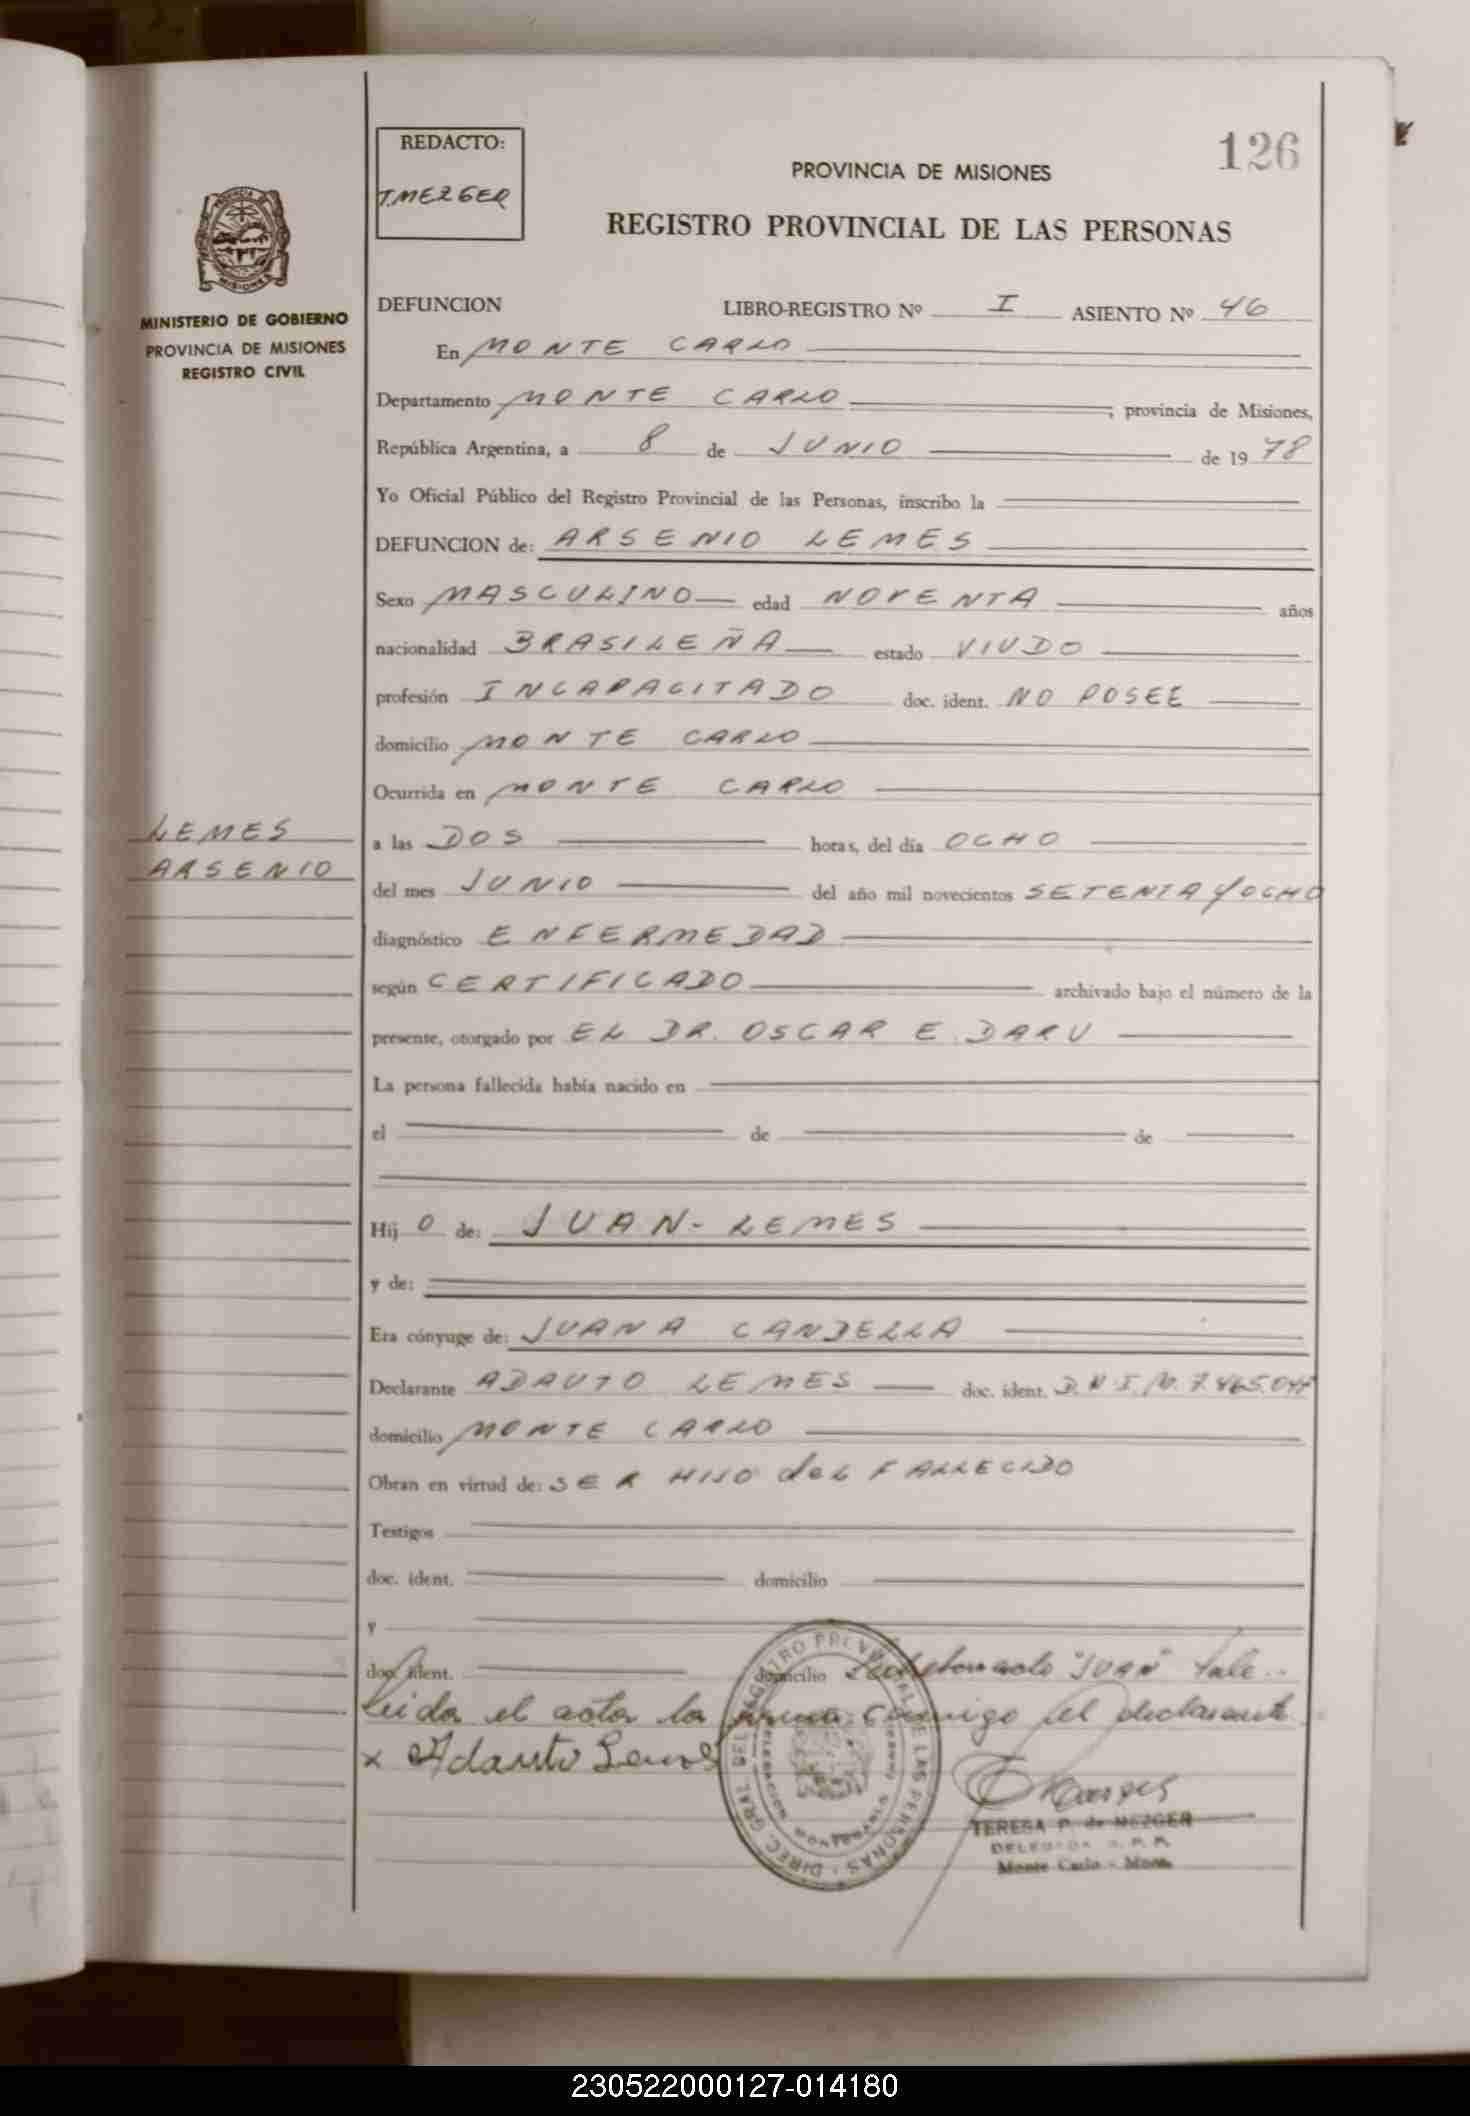 126
REDACTO:
T.MEZGER
PROVINCIA DE MISIONES
REGISTRO PROVINCIAL DE LAS PERSONAS
MINISTERIO DE GOBIERNO
PROVINCIA DE MISIONES
REGISTRO CIVIL
DEFUNCION LIBRO-REGISTRO Nº I ASIENTO Nº 46
En MONTE CARLO
Departamento MONTE CARLO, provincia de Misiones,
República Argentina, a 8 de JUNIO de 1978
Yo Oficial Público del Registro Provincial de las Personas, inscribo la
DEFUNCION de: ARSENIO LEMES
Sexo MASCULINO edad NOVENTA años
nacionalidad BRASILEÑA estado VIUDO
profesión INCAPACITADO doc. ident. NO POSEE
domicilio MONTE CARLO
Ocurrida en MONTE CARLO
LEMES
ARSENIO
a las DOS horas, del día OCHO
del mes JUNIO del año mil novecientos SETENTA Y OCHO
diagnóstico ENFERMEDAD
según CERTIFICADO archivado bajo el número de la
presente, otorgado por EL DR. OSCAR E. DARU
La persona fallecida había nacido en
el de de
Hij O de: JUAN - LEMES
y de:
Era cónyuge de: JUANA CANDELLA
Declarante ADAUTO LEMES doc. ident. D.N.I.N. 7.465.044
domicilio MONTE CARLO
Obran en virtud de: SER HIJO del FALLECIDO
Testigos
doc. ident. domicilio
y
doc. ident. domicilio "JUAN" Vale..
Leida el acta la firma conmigo el declarante
x Adauto Lemes
DIREC. GRAL. DEL REGISTRO PROVINCIAL DE LAS PERSONAS
TERESA P. de MEZGER
DELEGADA R. P. P.
Monte Carlo - Mnes.
230522000127-014180